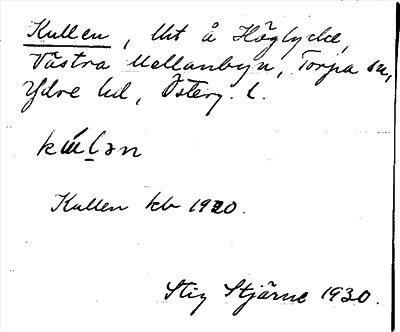 Kullen, lht å Höglycke,
Västra Mellanbyn, Torpa sn,
Ydre hd, Österg. l.
kɯ́lən
Kullen kb 1920.
Stig Stjärne 1930.